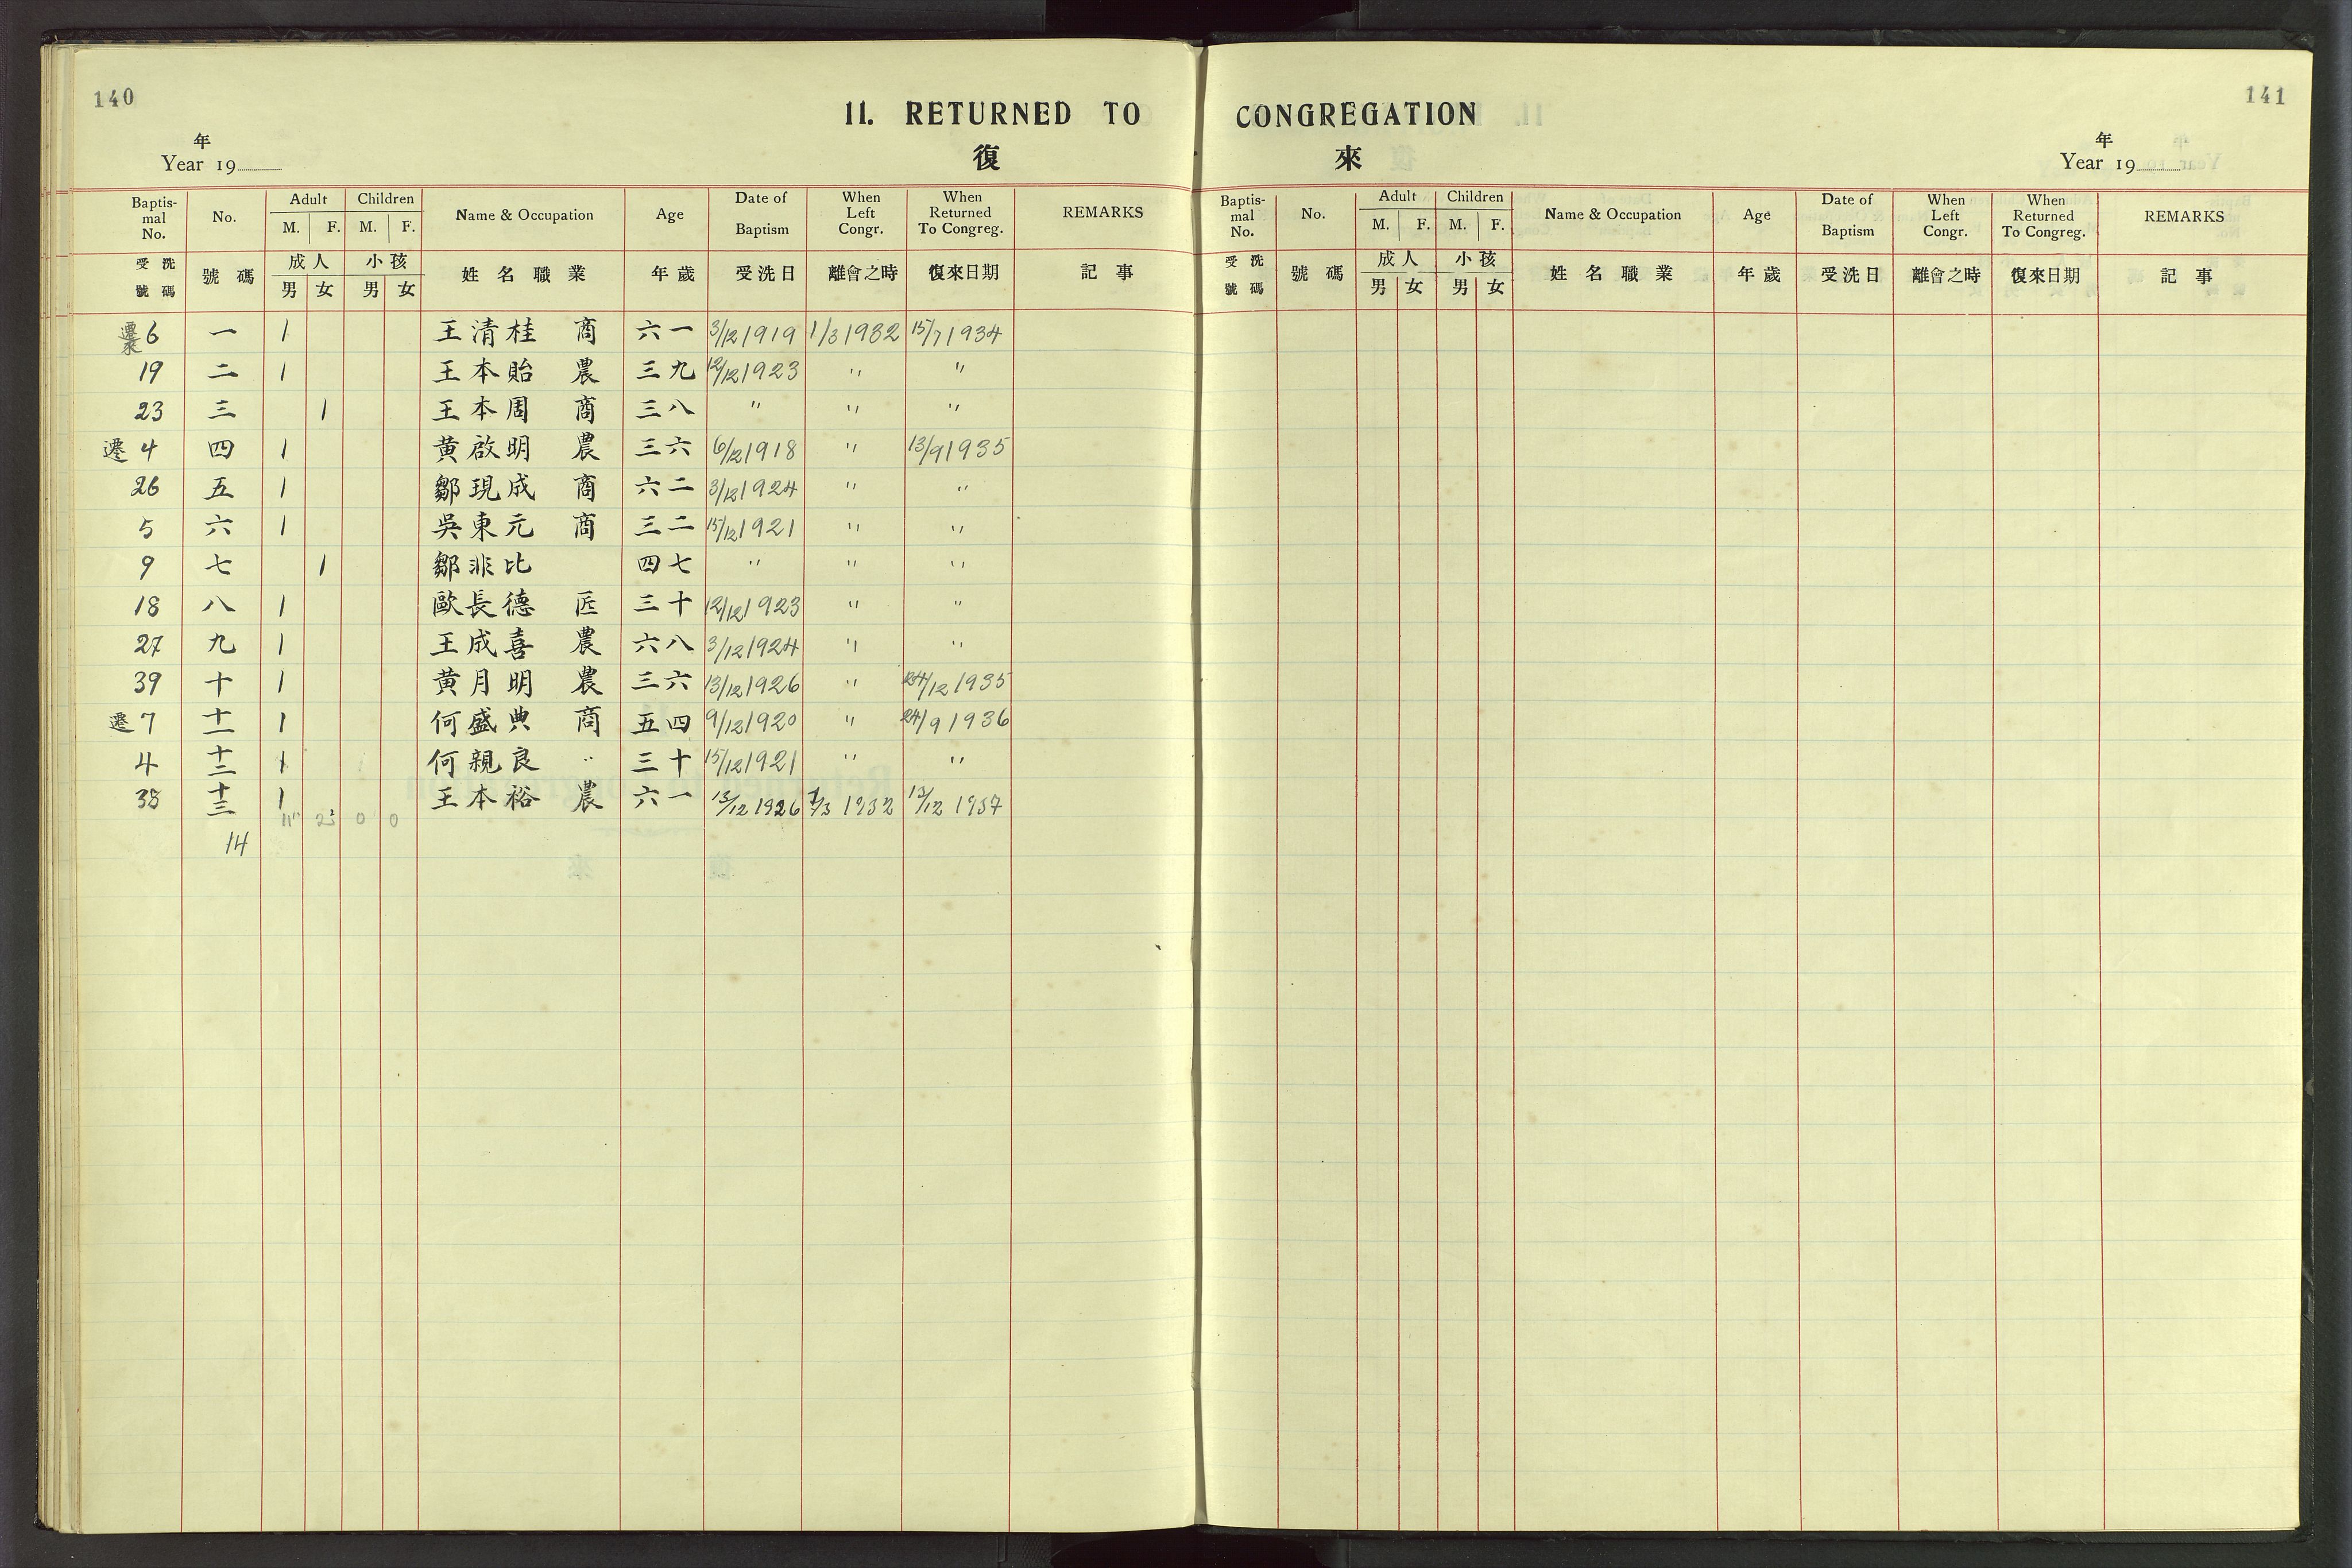 140
11. RETURNED TO CONGREGATION
141
年
Year 19
復 來
年
Year 19
Baptismal No. No. Adult M. F. Children M. F. Name & Occupation Age Date of Baptism When Left Congr. When Returned To Congreg. REMARKS
受洗號碼 號碼 成人 男 女 小孩 男 女 姓名職業 年歲 受洗日 離會之時 復來日期 記事
Baptismal No. No. Adult M. F. Children M. F. Name & Occupation Age Date of Baptism When Left Congr. When Returned To Congreg. REMARKS
受洗號碼 號碼 成人 男 女 小孩 男 女 姓名職業 年歲 受洗日 離會之時 復來日期 記事
遷來 6 一 1 王清桂 商 六一 3/12 1919 1/3 1932 15/7 1934
19 二 1 王本貽 農 三九 12/12 1923 " "
23 三 1 王本周 商 三八 " " "
遷 4 四 1 黄啟明 農 三六 6/12 1918 " 13/9 1935
26 五 1 鄒現成 商 六二 3/12 1924 " "
5 六 1 吳東元 商 三二 15/12 1921 " "
9 七 1 鄒非比 四七 " " "
18 八 1 歐長德 匠 三十 12/12 1923 " "
27 九 1 王成喜 農 六八 3/12 1924 " "
39 十 1 黄月明 農 三六 13/12 1926 " 24/12 1935
遷 7 十一 1 何盛典 商 五四 9/12 1920 " 24/9 1936
4 十二 1 何親良 " 三十 15/12 1921 " "
38 十三 1 王本裕 農 六一 13/12 1926 1/3 1932 13/12 1937
11 2 0 0
14